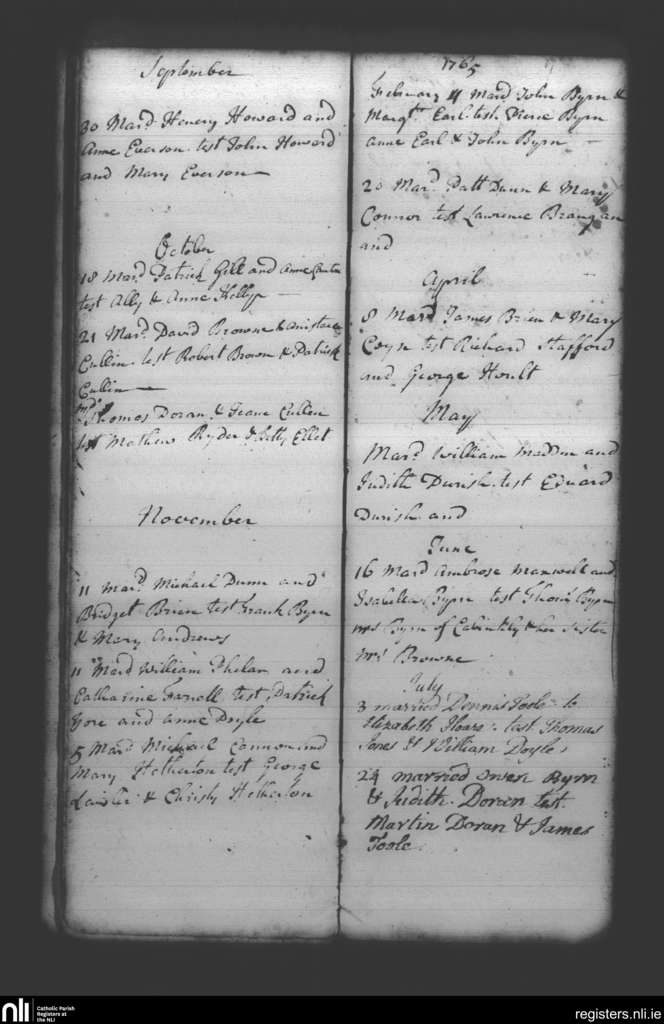 September
30 Mard Henery Howard and
Anne Everson. test John Howard
and Mary Everson
October
18 Mard Patrick Gill and Anne
test Ally & Anne
21 Mard David Browne &
Cullin. test Robert Brown & Patrick
Cullin
Md Thomas Doran & Jeane Cullen
test Mathew Ryder & Betty Ellet
November
11 Mard Michael Dunn and
Bridget Brien test Frank Byrn
& Mary Andrews
11 Mard William Phelan and
Catharine Farrell test, Patrick
Gore and Anne Doyle
5 Mard Michael Connor and
Mary Hetherton test George
& Christy Hetherton
1765
February 4 Mard John Byrn &
Margt Earl. test. Pierce Byrn
Anne Earl & John Byrn
20 Mard Patt Dunn & Mary
Connor test Lawrence Brangan
and
April
8 Mard James Brien & Mary
Coyn test Richard Stafford
and George Hoult
May
Mard William Maddin and
Judith Durish. test Edward
Durish and
June
16 Mard Ambrose Maxwell and
Isabella Byrn test Thoms Byrn
Mrs Byrn of Cabinteely & her sister
Mrs Browne
July
3 married Dennis Toole to
Elizabeth Hoare: test Thomas
Jones & William Doyle
24 married Owen Byrn
& Judith. Doran test.
Martin Doran & James
Toole.
nli Catholic Parish
Registers at
the NLI
registers.nli.ie